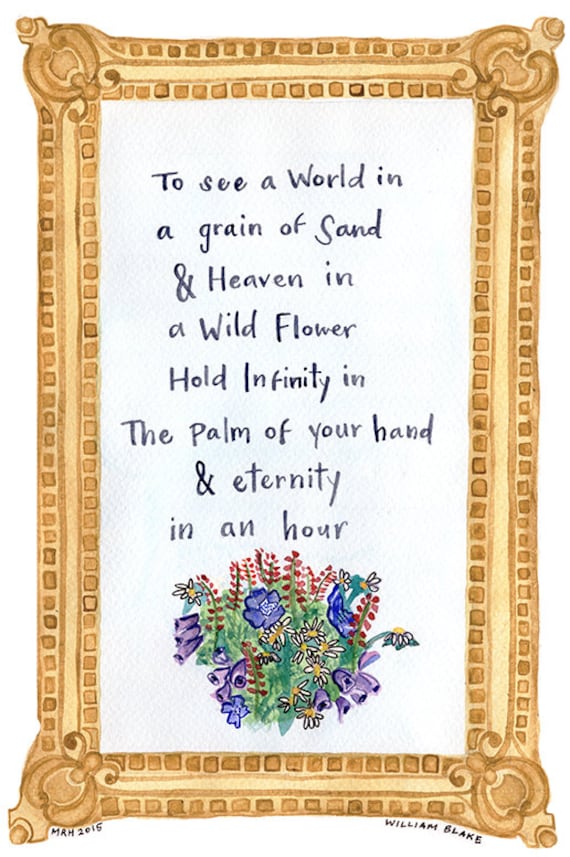 To see a World in
a grain of Sand
& Heaven in
a Wild Flower
Hold Infinity in
The Palm of your hand
& eternity
in an hour
MRH 2015
WILLIAM BLAKE